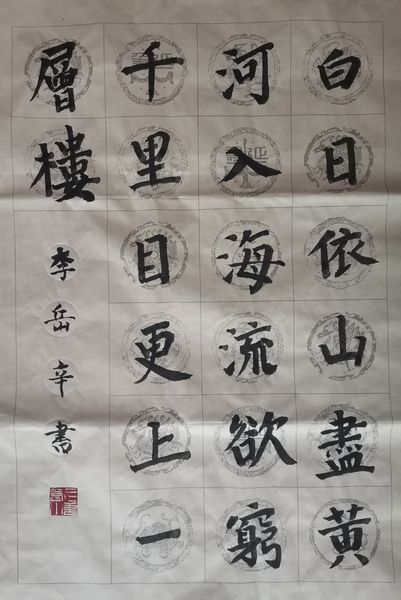 白日依山盡黄
河入海流欲窮
千里目更上一
層樓
李岳辛書